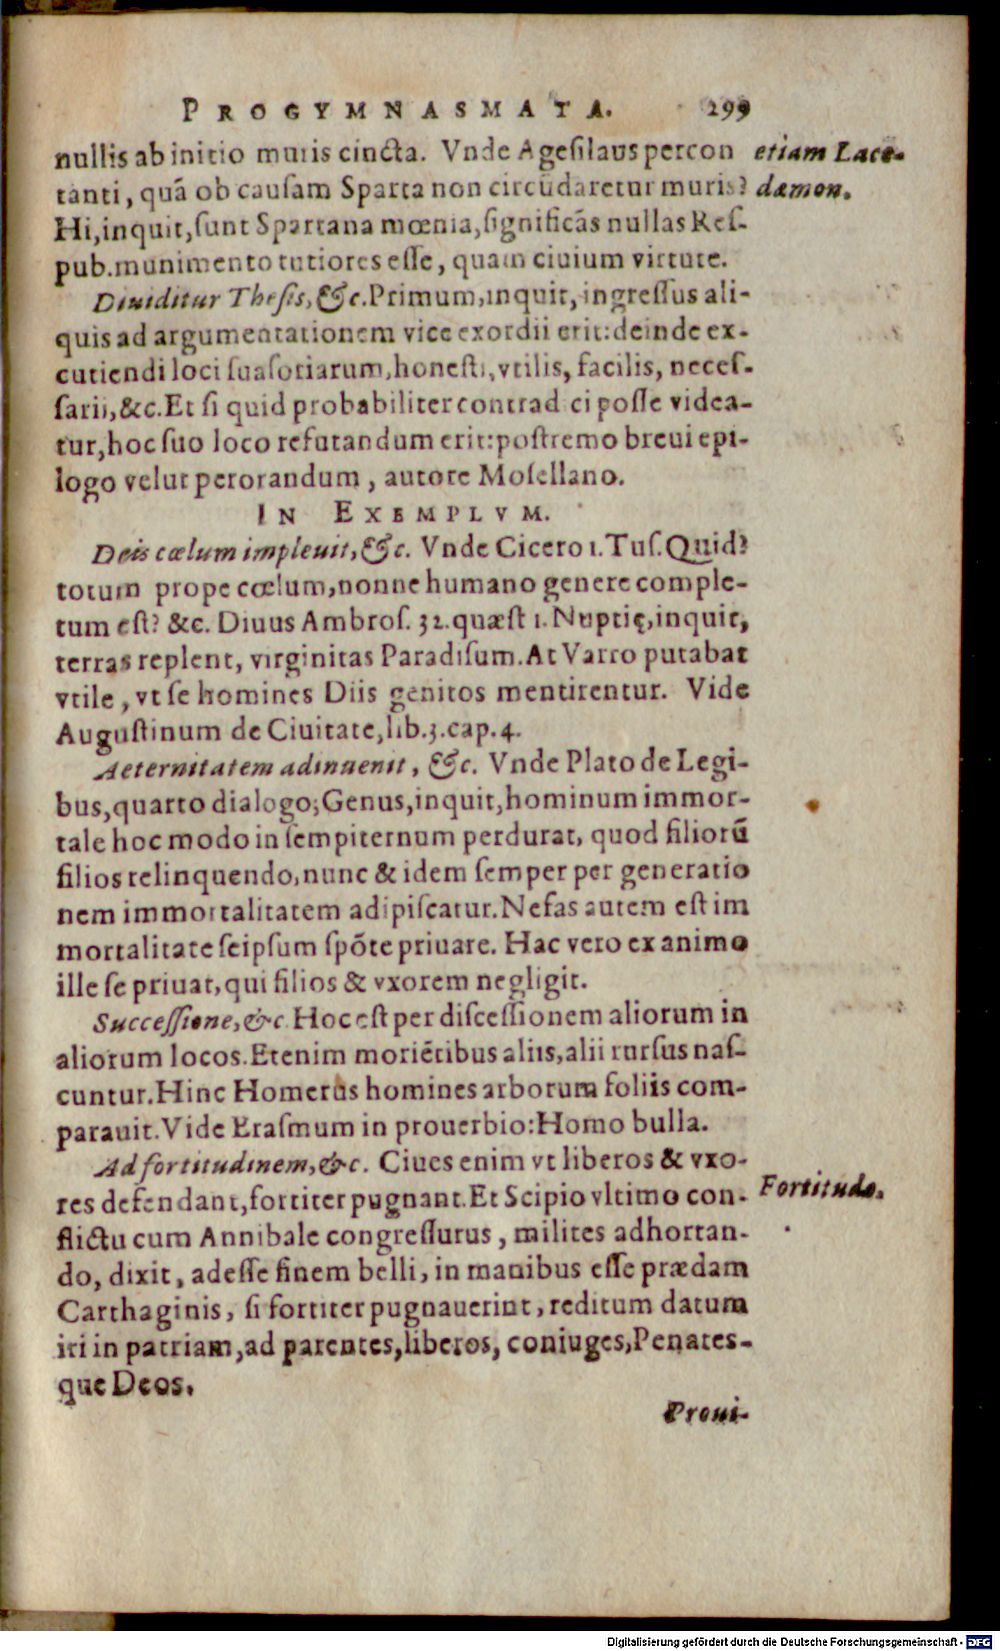 PROGYMNASMATA. 299
nullis ab initio muris cincta. Vnde Agesilaus percon etiam Lace-
tanti, quā ob causam Sparta non circūdaretur muris? dæmon.
Hi, inquit, sunt Spartana mœnia, significās nullas Res-
pub. munimento tutiores esse, quam ciuium virtute.
Diuiditur Thesis, &c. Primum, inquit, ingressus ali-
quis ad argumentationem vice exordii erit: deinde ex-
cutiendi loci suasoriarum, honesti, vtilis, facilis, neces-
sarii, &c. Et si quid probabiliter contrad ci posse videa-
tur, hoc suo loco refutandum erit: postremo breui epi-
logo velut perorandum, autore Mosellano.
IN EXEMPLVM.
Deis cœlum impleuit, &c. Vnde Cicero 1. Tus. Quid?
totum prope cœlum, nonne humano genere comple-
tum est? &c. Diuus Ambros. 32. quæst 1. Nuptię, inquit,
terras replent, virginitas Paradisum. At Varro putabat
vtile, vt se homines Diis genitos mentirentur. Vide
Augustinum de Ciuitate, lib. 3. cap. 4.
Aeternitatem adinuenit, &c. Vnde Plato de Legi-
bus, quarto dialogo; Genus, inquit, hominum immor-
tale hoc modo in sempiternum perdurat, quod filiorū
filios relinquendo, nunc & idem semper per generatio
nem immortalitatem adipiscatur. Nefas autem est im
mortalitate seipsum spōte priuare. Hac vero ex animo
ille se priuat, qui filios & vxorem negligit.
Successione, &c Hoc est per discessionem aliorum in
aliorum locos. Etenim moriētibus aliis, alii rursus nas-
cuntur. Hinc Homerus homines arborum foliis com-
parauit. Vide Erasmum in prouerbio: Homo bulla.
Ad fortitudinem, &c. Ciues enim vt liberos & vxo-
res defendant, fortiter pugnant. Et Scipio vltimo con- Fortitudo.
flictu cum Annibale congressurus, milites adhortan-
do, dixit, adesse finem belli, in manibus esse prædam
Carthaginis, si fortiter pugnauerint, reditum datum
iri in patriam, ad parentes, liberos, coniuges, Penates-
que Deos.
Proui-
Digitalisierung gefördert durch die Deutsche Forschungsgemeinschaft - DFG